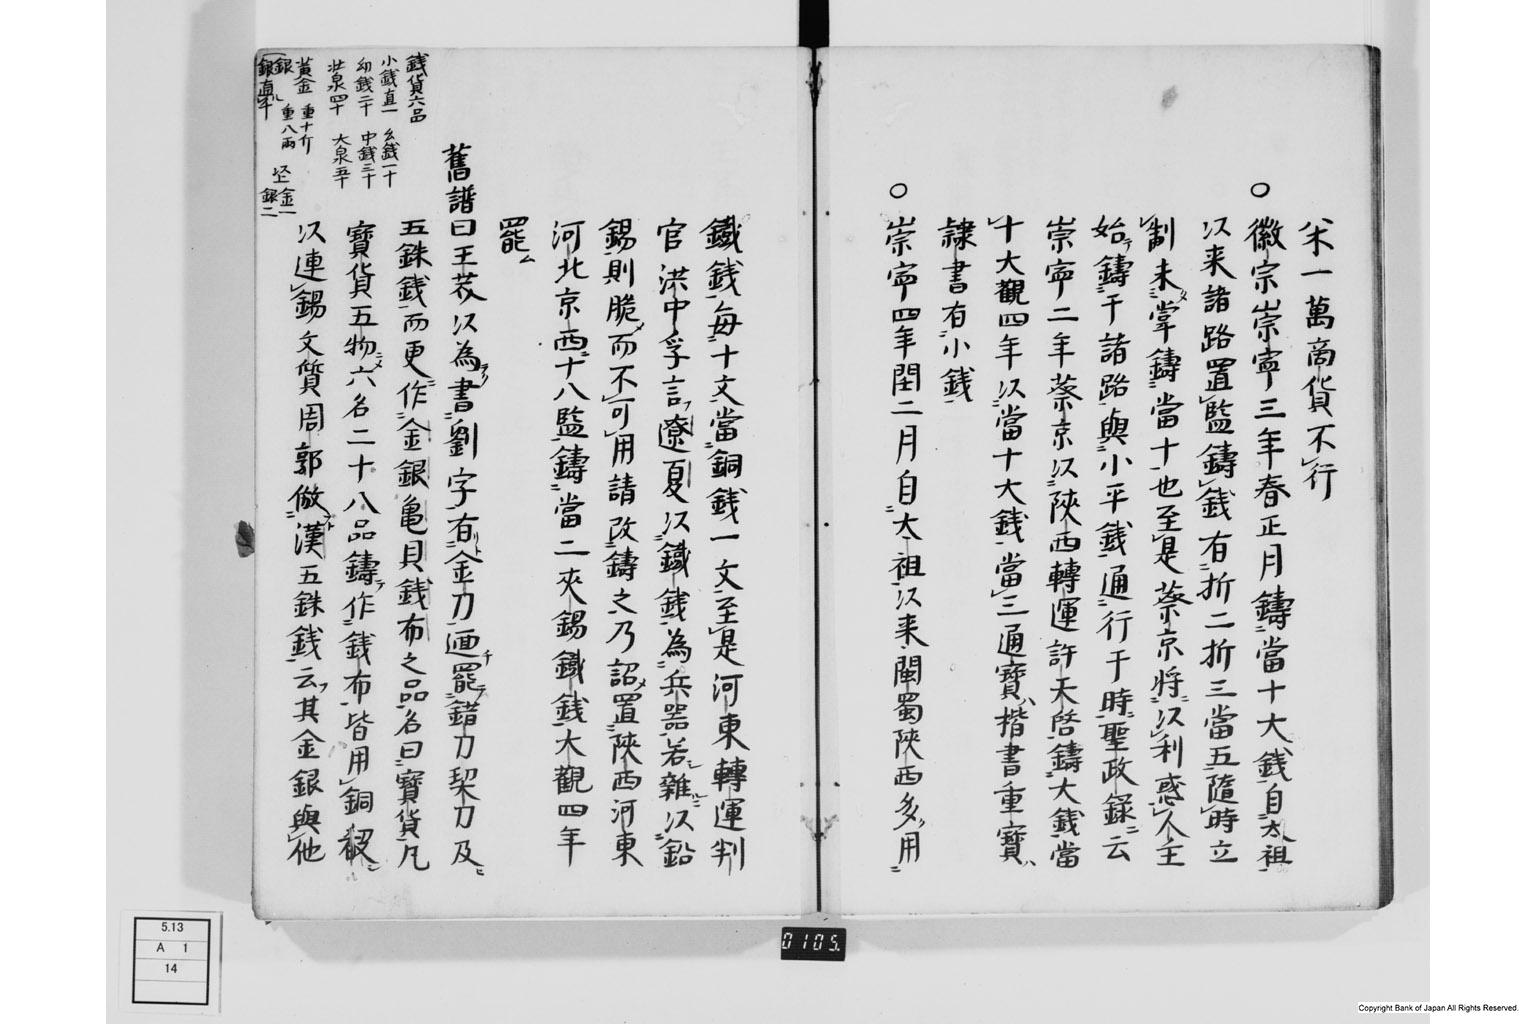 米一萬商貨不行
○徽宗崇寧三年春正月鑄當十大錢自太祖
以来諸路置監鑄錢有折二折三當五隨時立
制未掌鑄當十也至是蔡京將以利惑人主
始鑄于諸路與小平錢通行于時聖政錄云
崇寧二年蔡京以陝西轉運許天啓鑄大錢當
十大觀四年以當十大錢當三通寳楷書重寳
隷書有小錢
○崇寧四年閏二月自太祖以来閩蜀陝西多用
鐵錢每十文當銅錢一文至是河東轉運判
官洪中孚言遼夏以鐵錢為兵器若雜以鉛
錫則脆而不可用請改鑄之乃詔置陝西河東
河北京西十八監鑄當二夾錫鐵錢大觀四年
罷
舊譜曰王莽以為書劉字有金刀迺罷錯刀契刀及
五銖錢而更作金銀亀貝錢布之品名曰寳貨凡
寳貨五物六名二十八品鑄作錢布皆用銅殽
以連錫文質周郭倣漢五銖錢云其金銀與他
錢貨六品
小錢直一 幺錢一十
幼錢二十 中錢三十
壮泉四十 大泉五十
黄金 重十斤
銀 重八兩 金一
銀直千 銀二
0105
5.13
A 1
14
Copyright Bank of Japan All Rights Reserved.